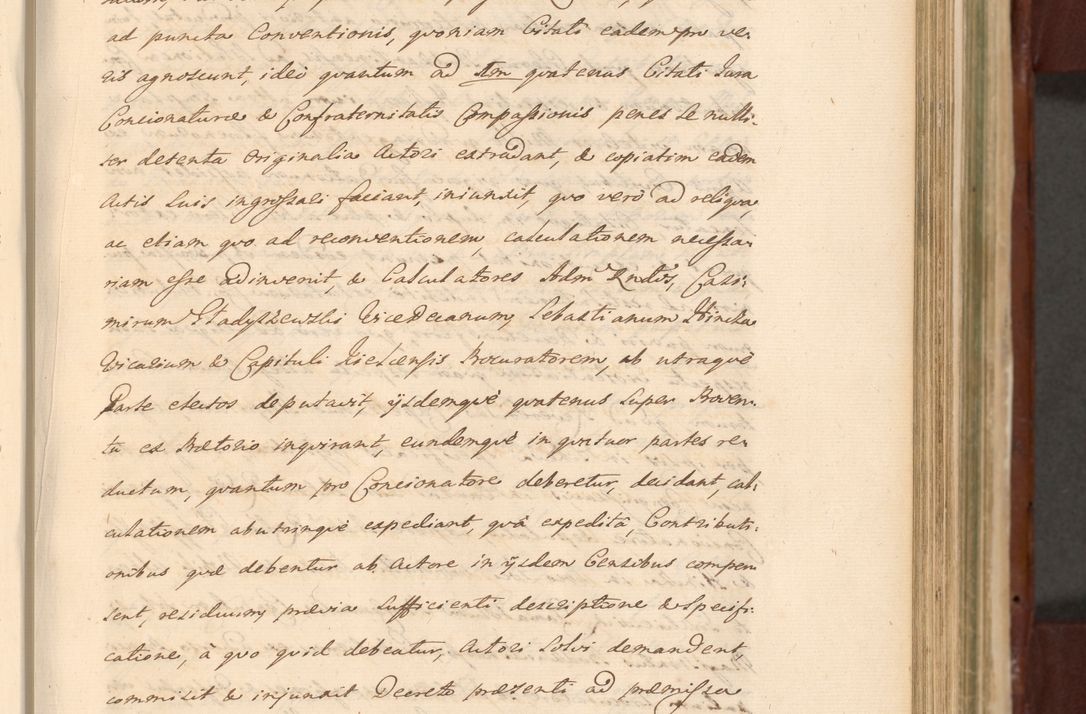 ad puncta Conventionis, qvoniam Citati eadem pro ve,
ris agnoscunt, ideò qvantum ad 1mm qvatenus Citati Jura
Concionaturæ & Confraternitatis Compassionis penes se nulli,
ter detenta Originalia Actori extradant, & copiatim eadem
Actis Suis ingrossari faciant, iniunxit, qvo verò ad reliqva,
ac etiam qvo ad reconventionem, calculationem necessa,
riam esse adinvenit, & Calculatores Adm Rndos, Casi,
mirum Vicedecanum, Sebastianum
Vicarium & Capituli Kielcensis Procuratorem, ab utraqvè
Parte electos deputavit, ijsdemqvè qvatenus Super Proven,
tu ex Prætorio inqvirant, eundemqvè in qvatuor partes re,
ductum, qvantum pro Concionatore deberetur, decidant, cal,
culationem ab utrinqvè expediant, qvâ expeditâ, Contributi,
onibus qvæ debentur ab Actore in ijsdem Censibus compen
sent, residuum prævia Sufficienti descriptione & Specifi,
catione, à qvo qvid debeatur, Actori Solvi demandent,
commisit & injunxit Decreto præsenti ad præmissa